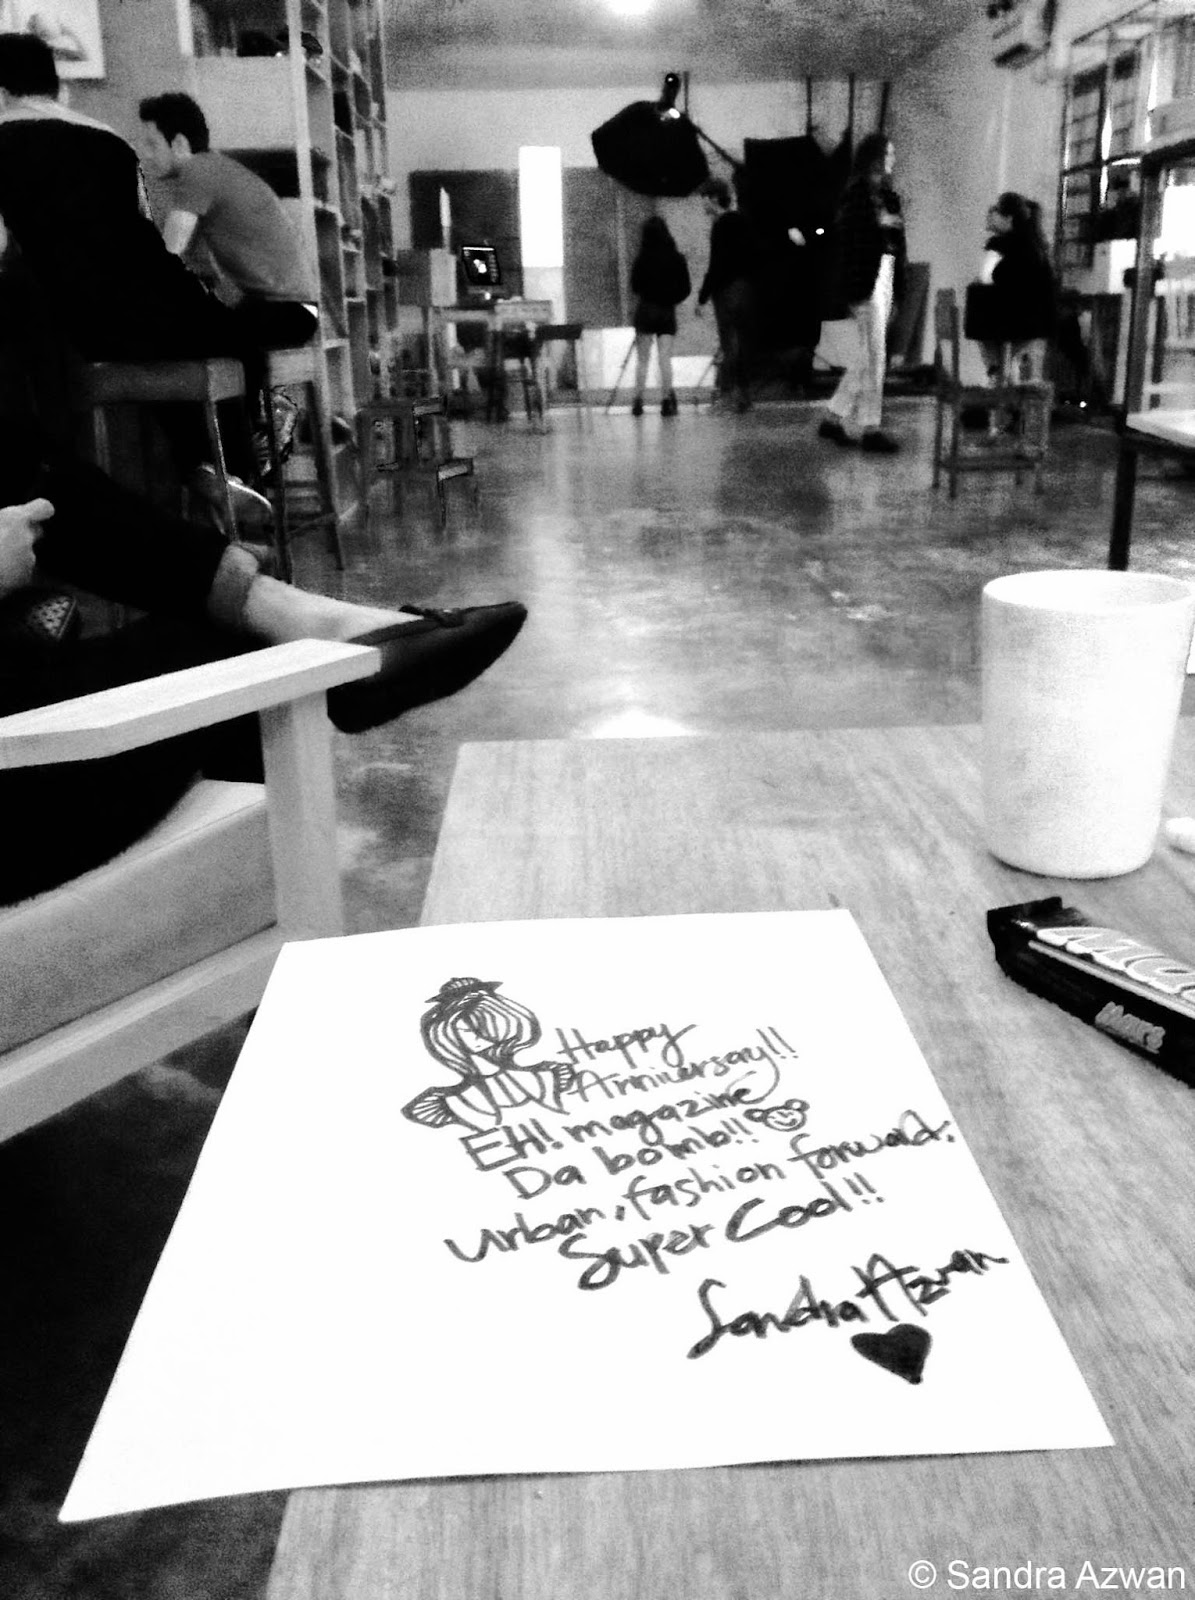 Happy
Anniversay!!
EH! magazine
Da bomb!!
Urban, fashion forward,
Super Cool!!
Sandra Azwan
Mars
© Sandra Azwan